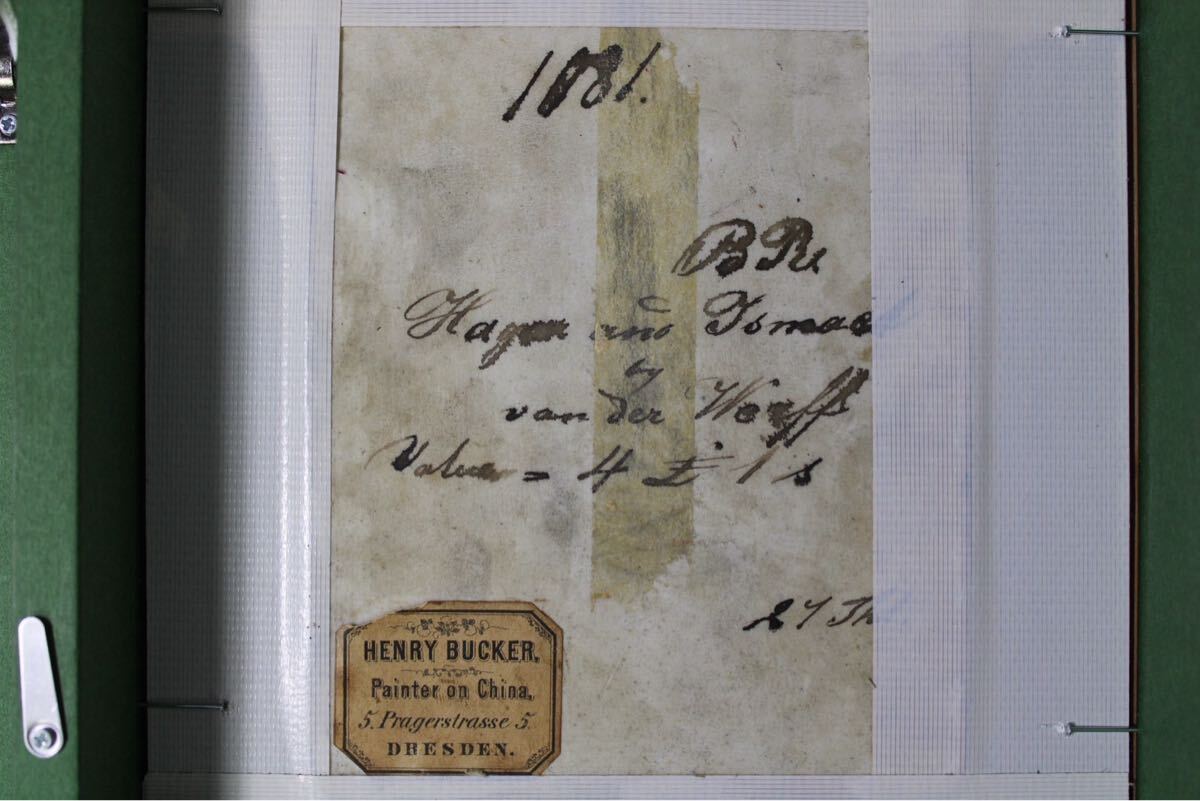 1881.
BRu
Hagar and Ismael
by
van der Werff
Value = 4 £ 1 s
27 Th
HENRY BUCKER.
Painter on China,
5. Pragerstrasse 5.
DRESDEN.